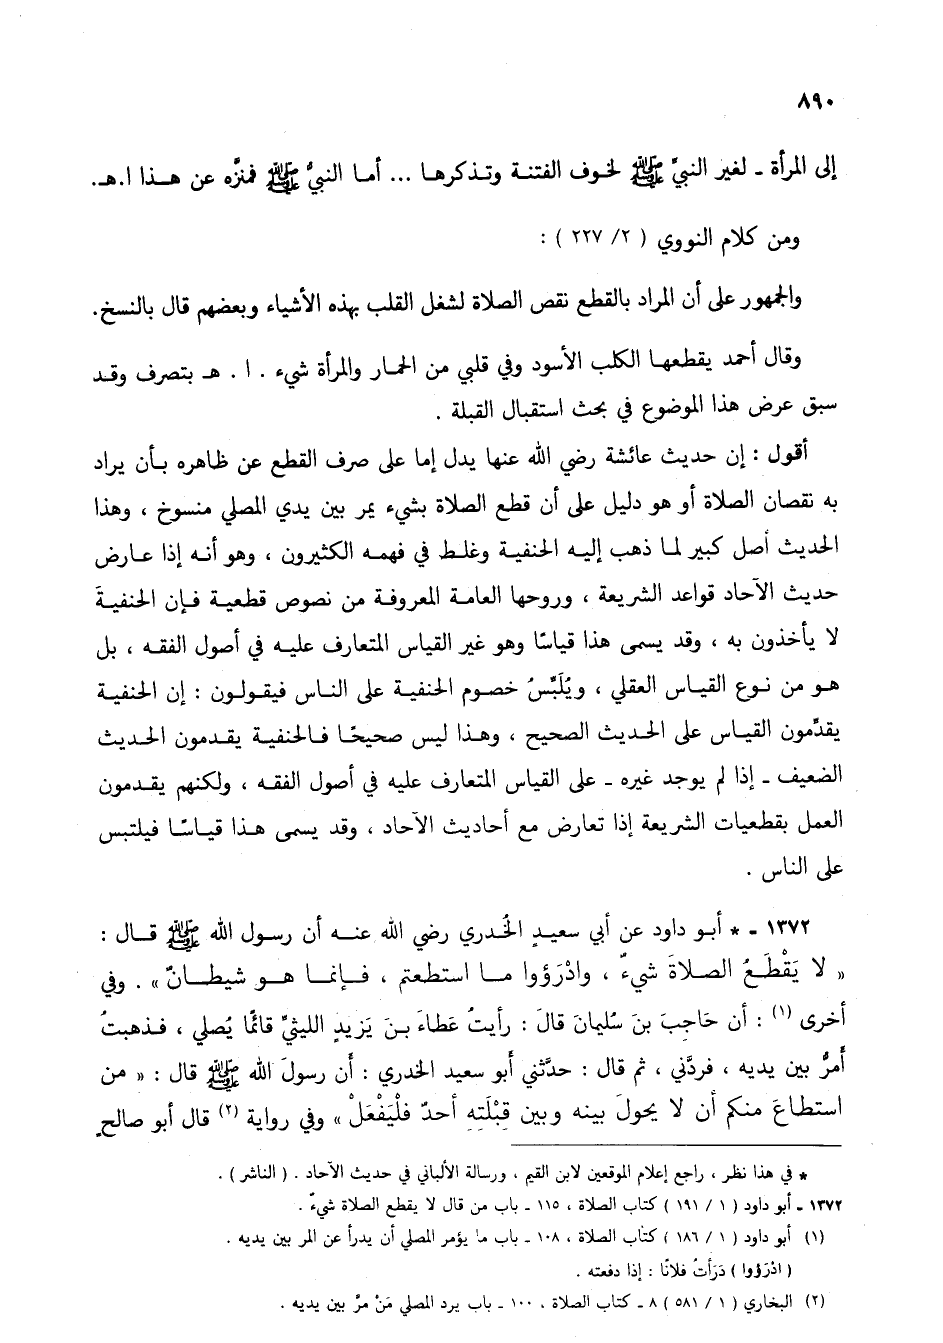 ٨٩٠
إلى المرأة ـ لغير النبيِّ ﷺ لخوف الفتنة وتذكرها ... أما النبيُّ ﷺ فمنزَّه عن هذا ا.هـ.
ومن كلام النووي ( ٢/ ٢٢٧ ) :
والجمهور على أن المراد بالقطع نقص الصلاة لشغل القلب بهذه الأشياء وبعضهم قال بالنسخ.
وقال أحمد يقطعها الكلب الأسود وفي قلبي من الحمار والمرأة شيء . ا . هـ بتصرف وقد
سبق عرض هذا الموضوع في بحث استقبال القبلة .
أقول : إن حديث عائشة رضي الله عنها يدل إما على صرف القطع عن ظاهره بأن يراد
به نقصان الصلاة أو هو دليل على أن قطع الصلاة بشيء يمر بين يدي المصلي منسوخ ، وهذا
الحديث أصل كبير لما ذهب إليه الحنفية وغلط في فهمه الكثيرون ، وهو أنه إذا عارض
حديث الآحاد قواعد الشريعة ، وروحها العامة المعروفة من نصوص قطعية فإن الحنفيةَ
لا يأخذون به ، وقد يسمى هذا قياسًا وهو غير القياس المتعارف عليه في أصول الفقه ، بل
هو من نوع القياس العقلي ، ويُلَبِّسُ خصوم الحنفية على الناس فيقولون : إن الحنفية
يقدِّمون القياس على الحديث الصحيح ، وهذا ليس صحيحًا فالحنفية يقدمون الحديث
الضعيف ـ إذا لم يوجد غيره ـ على القياس المتعارف عليه في أصول الفقه ، ولكنهم يقدمون
العمل بقطعيات الشريعة إذا تعارض مع أحاديث الآحاد ، وقد يسمى هذا قياسًا فيلتبس
على الناس .
١٣٧٢ ـ * أبو داود عن أبي سعيدٍ الخُدري رضي الله عنه أن رسول الله ﷺ قال :
« لا يَقْطَعُ الصلاةَ شيءٌ ، وادْرَؤوا ما استطعتم ، فإنما هو شيطانٌ » . وفي
أخرى (١) : أن حَاجِبَ بنَ سُليمانَ قالَ : رأيتُ عَطاءَ بنَ يَزيدٍ الليثيَّ قائمًا يُصلي ، فذهبتُ
أَمرُّ بين يديه ، فردَّني ، ثم قال : حدَّثني أبو سعيد الخدري : أن رسولَ الله ﷺ قال : « من
استطاعَ منكم أن لا يحولَ بينه وبين قِبْلَتِهِ أحدٌ فلْيَفْعَلْ » وفي رواية (٢) قال أبو صالحٍ
* في هذا نظر ، راجع إعلام الموقعين لابن القيم ، ورسالة الألباني في حديث الآحاد . ( الناشر ) .
١٣٧٢ ـ أبو داود ( ١ / ١٩١ ) كتاب الصلاة ، ١١٥ ـ باب من قال لا يقطع الصلاة شيءٌ .
(١) أبو داود ( ١ / ١٨٦ ) كتاب الصلاة ، ١٠٨ ـ باب ما يؤمر المصلي أن يدرأ عن المر بين يديه .
( ادْرَؤوا ) دَرَأتُ فلانًا : إذا دفعته .
(٢) البخاري ( ١ / ٥٨١ ) ٨ ـ كتاب الصلاة ، ١٠٠ ـ باب يرد المصلي مَنْ مرَّ بين يديه .